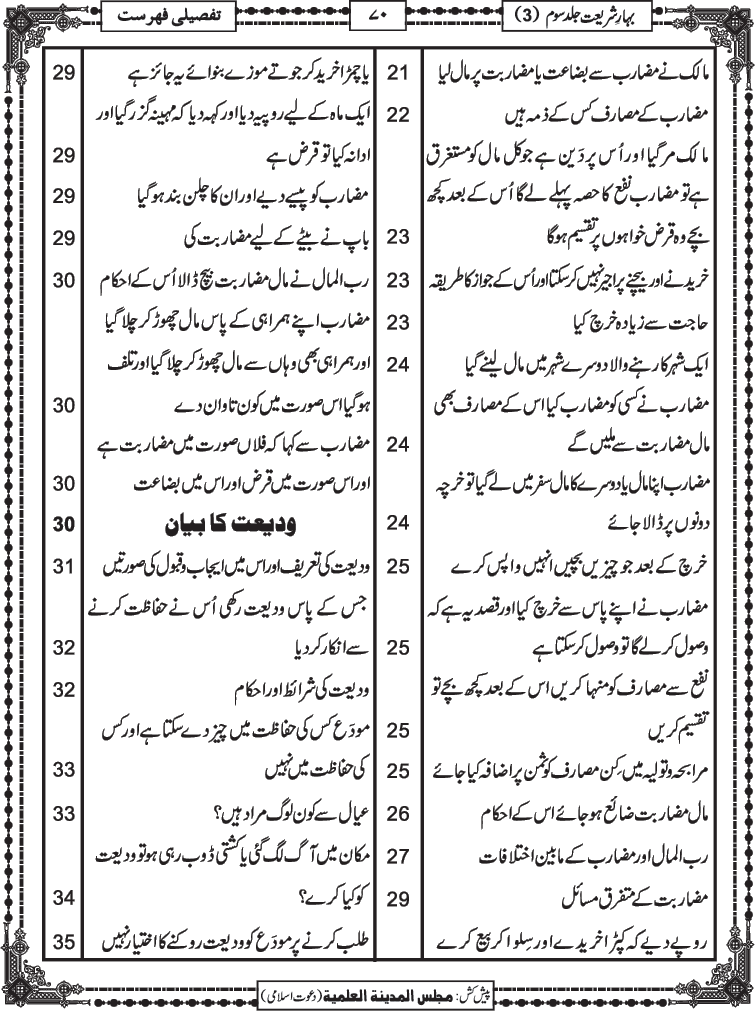 بہارِ شریعت جلد سوم (3)
۷۰
تفصیلی فہرست
مالک نے مضارب سے بضاعت یا مضاربت پر مال لیا 21
مضارب کے مصارف کس کے ذمہ ہیں 22
مالک مرگیا اور اُس پر دَین ہے جو کل مال کو مستغرق
ہے تو مضارب نفع کا حصہ پہلے لے گا اُس کے بعد کچھ
بچے وہ قرض خواہوں پر تقسیم ہوگا 23
خریدنے اور بیچنے پر اجیر نہیں کرسکتا اور اُس کے جواز کا طریقہ 23
حاجت سے زیادہ خرچ کیا 23
ایک شہر کا رہنے والا دوسرے شہر میں مال لینے گیا 24
مضارب نے کسی کو مضارب کیا اس کے مصارف بھی
مال مضاربت سے ملیں گے 24
مضارب اپنا مال یا دوسرے کا مال سفر میں لے گیا تو خرچہ
دونوں پر ڈالا جائے 24
خرچ کے بعد جو چیزیں بچیں انہیں واپس کرے 25
مضارب نے اپنے پاس سے خرچ کیا اور قصد یہ ہے کہ
وصول کرلے گا تو وصول کرسکتا ہے 25
نفع سے مصارف کو منہا کریں اس کے بعد کچھ بچے تو
تقسیم کریں 25
مرابحہ و تولیہ میں کِن مصارف کو ثمن پر اضافہ کیا جائے 25
مال مضاربت ضائع ہوجائے اس کے احکام 26
رب المال اور مضارب کے مابین اختلافات 27
مضاربت کے متفرق مسائل 29
روپے دیے کہ کپڑا خریدے اور سِلوا کر بیع کرے
یا چمڑا خرید کر جوتے موزے بنوائے یہ جائز ہے 29
ایک ماہ کے لیے روپیہ دیا اور کہہ دیا کہ مہینہ گزر گیا اور
ادا نہ کیا تو قرض ہے 29
مضارب کو پیسے دیے اور ان کا چلن بند ہوگیا 29
باپ نے بیٹے کے لیے مضاربت کی 29
رب المال نے مال مضاربت بیچ ڈالا اُس کے احکام 30
مضارب اپنے ہمراہی کے پاس مال چھوڑ کر چلا گیا
اور ہمراہی بھی وہاں سے مال چھوڑ کر چلا گیا اور تلف
ہوگیا اس صورت میں کون تاوان دے 30
مضارب سے کہا کہ فلاں صورت میں مضاربت ہے
اور اس صورت میں قرض اور اس میں بضاعت 30
ودیعت کا بیان 30
ودیعت کی تعریف اور اس میں ایجاب و قبول کی صورتیں 31
جس کے پاس ودیعت رکھی اُس نے حفاظت کرنے
سے انکار کردیا 32
ودیعت کی شرائط اور احکام 32
مودَع کس کی حفاظت میں چیز دے سکتا ہے اور کس
کی حفاظت میں نہیں 33
عیال سے کون لوگ مراد ہیں؟ 33
مکان میں آگ لگ گئی یا کشتی ڈوب رہی ہو تو ودیعت
کو کیا کرے؟ 34
طلب کرنے پر مودَع کو ودیعت روکنے کا اختیار نہیں 35
پیش کش: مجلس المدینة العلمیة (دعوت اسلامی)